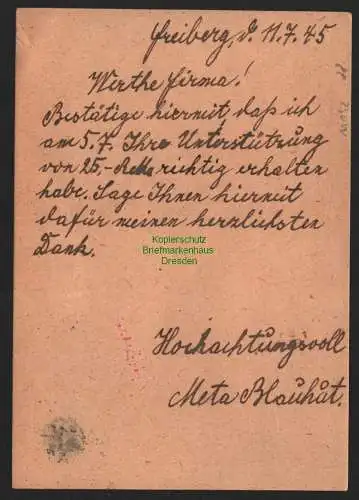 Freiberg, d. 11.7.45
Werthe Firma!
Bestätige hiermit daß ich
am 5.7. Ihre Unterstützung
von 25,- richtig erhalten
habe. Sage Ihnen hiermit
dafür meinen herzlichsten
Dank.
Kopierschutz
Briefmarkenhaus
Dresden
Hochachtungsvoll
Meta Blauhut.